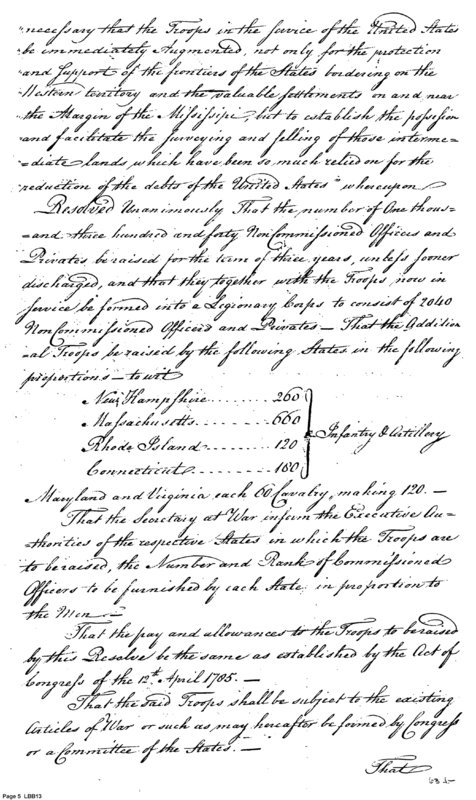 necessary that the Troops in the service of the United States
be immediately Augmented, not only for the protection
and Support of the frontiers of the States bordering on the
Western territory and the valuable settlements on and near
the Margin of the Missisipi, but to establish the possession
and facilitate the surveying and selling of those interme=
=diate lands which have been so much relied on for the
reduction of the debts of the United States" whereupon
Resolved Unanimously That the number of One thous=
=and three hundred and forty NonCommissioned Officers and
Privates be raised for the term of three years, unless sooner
discharged, and that they together with the Troops now in
service be formed into a Legionary Corps to consist of 2040
NonCommissioned Officers and Privates — That the Addition
=al Troops be raised by the following States in the following
proportions — to wit
New Hampshire ........ 260
Massachusetts ....... 660
Rhode Island ........ 120
Connecticut ......... 180
Infantry & Artillery
Maryland and Virginia each 60 Cavalry, making 120. —
That the Secretary at War inform the Executive Au=
=thorities of the respective States in which the Troops are
to be raised, the Number and Rank of Commissioned
Officers to be furnished by each State in proportion to
the Men —
That the pay and allowances to the Troops to be raised
by this Resolve be the same as established by the Act of
Congress of the 12th April 1785. —
That the said Troops shall be subject to the existing
Articles of War or such as may hereafter be formed by Congress
or a Committee of the States. —
That
Page 5 LBB13